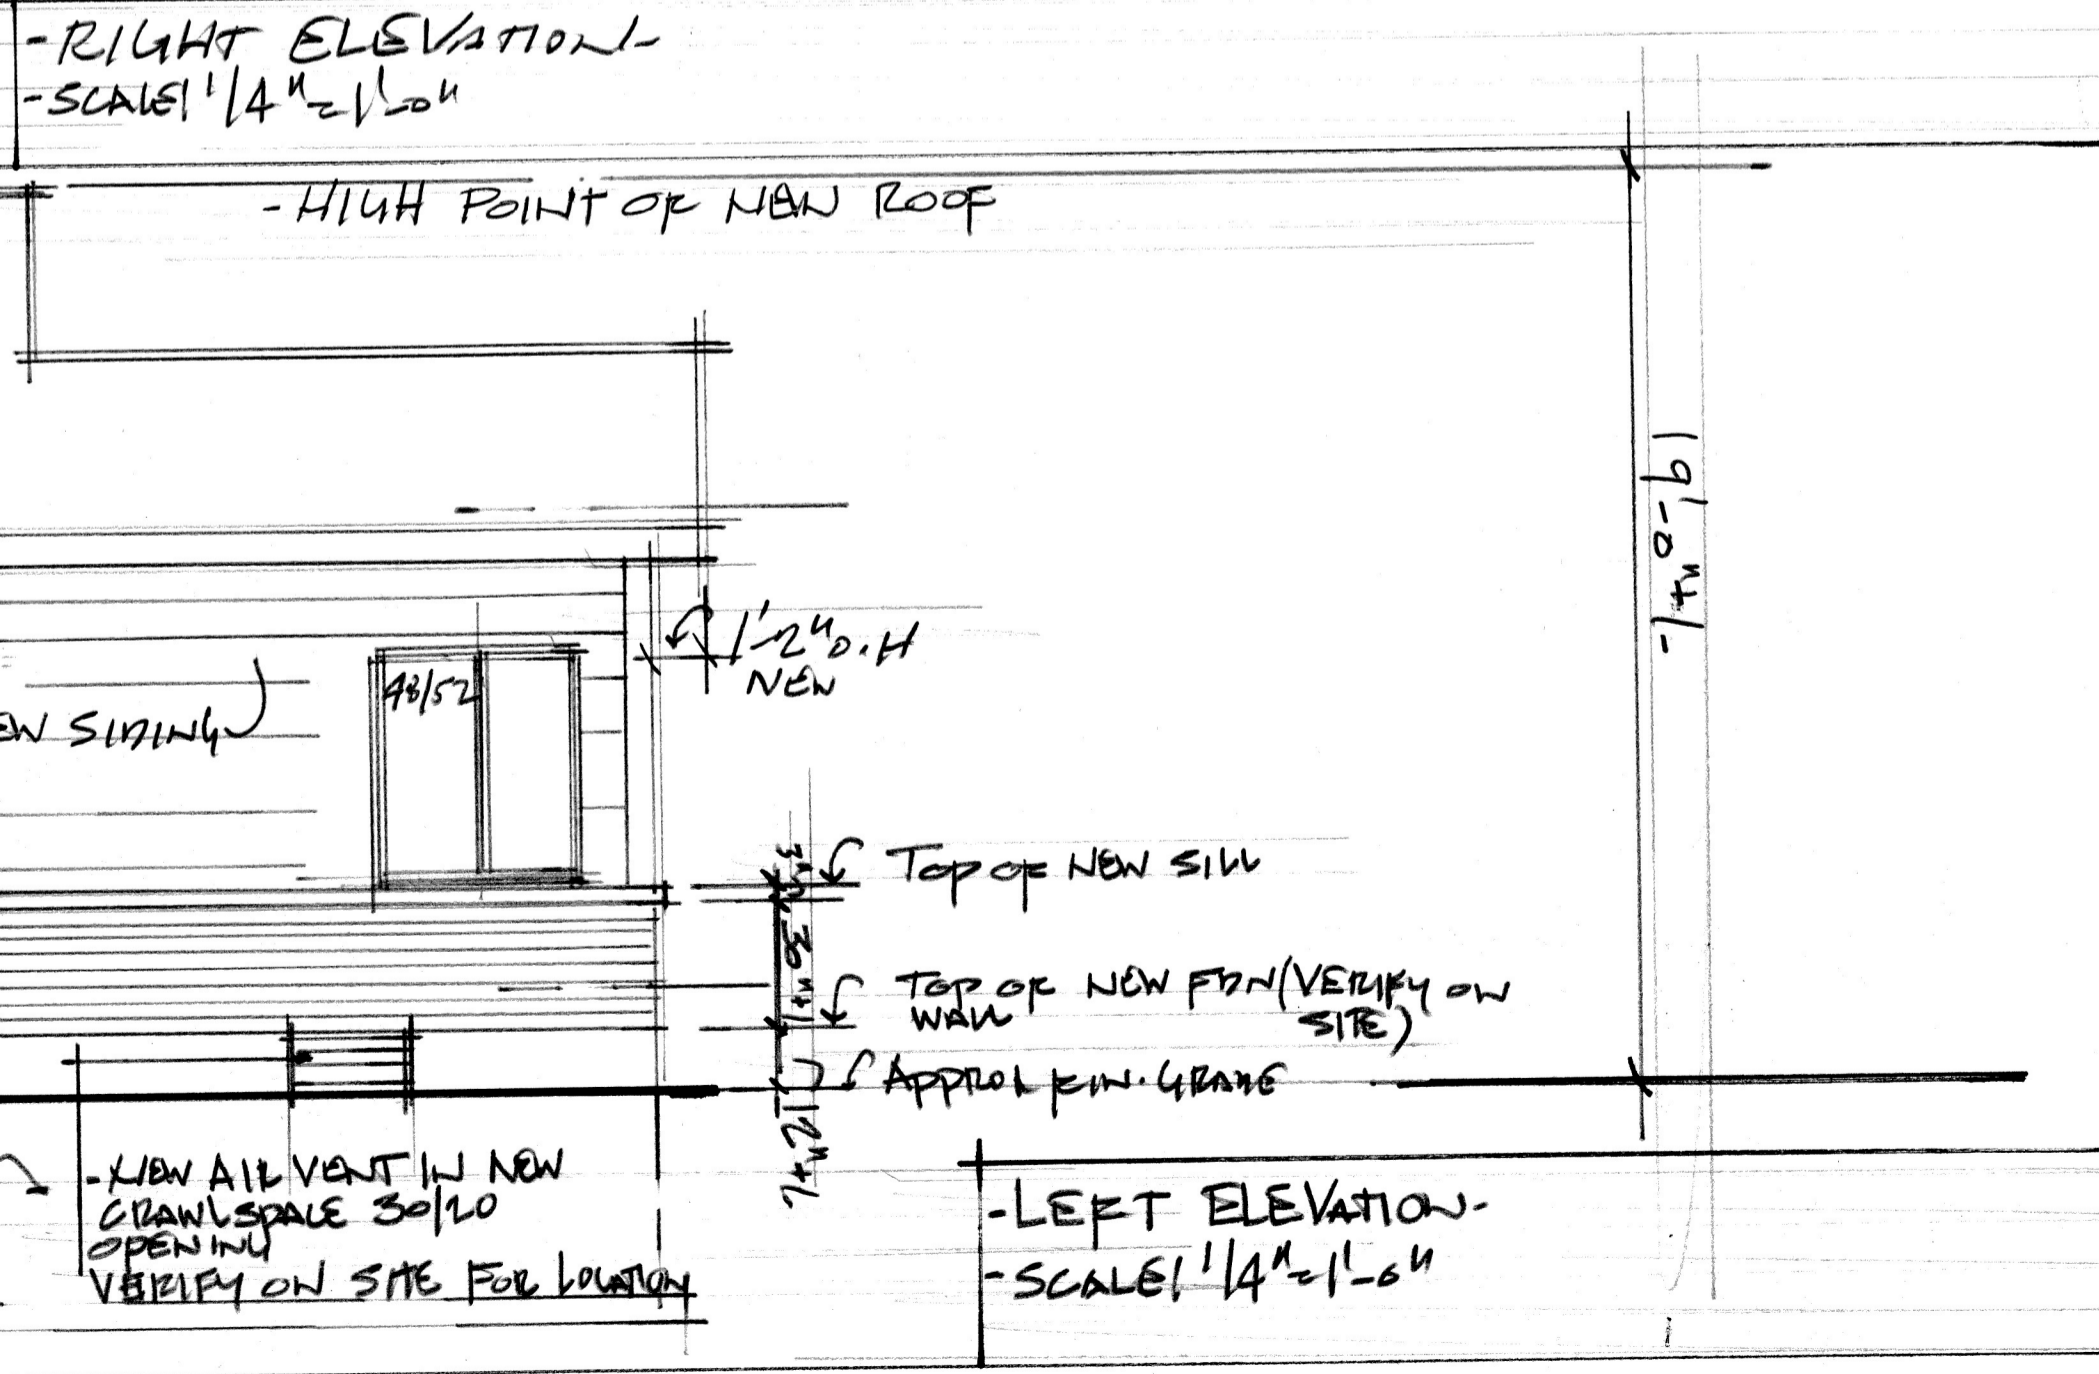 -RIGHT ELEVATION-
-SCALE: 1/4"=1'-0"
-HIGH POINT OF NEW ROOF
19'-0"+/-
1'-2" O.H
NEW
48/52
EW SIDING
3"
TOP OF NEW SILL
30"+/-
TOP OF NEW FDN (VERIFY ON
WALL SITE)
APPROX FIN. GRADE
12"+/-
-NEW AIR VENT IN NEW
CRAWLSPACE 30/20
OPENING
VERIFY ON SITE FOR LOCATION
-LEFT ELEVATION-
-SCALE: 1/4"=1'-0"